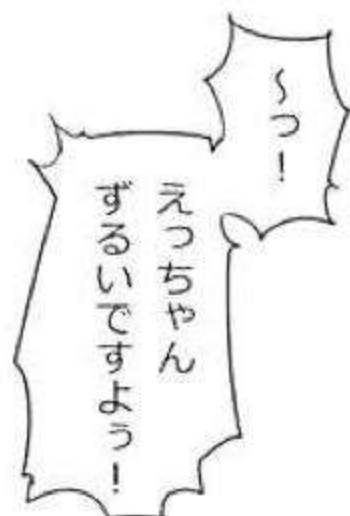 ～っ！
えっちゃん
ずるいですよぅ！